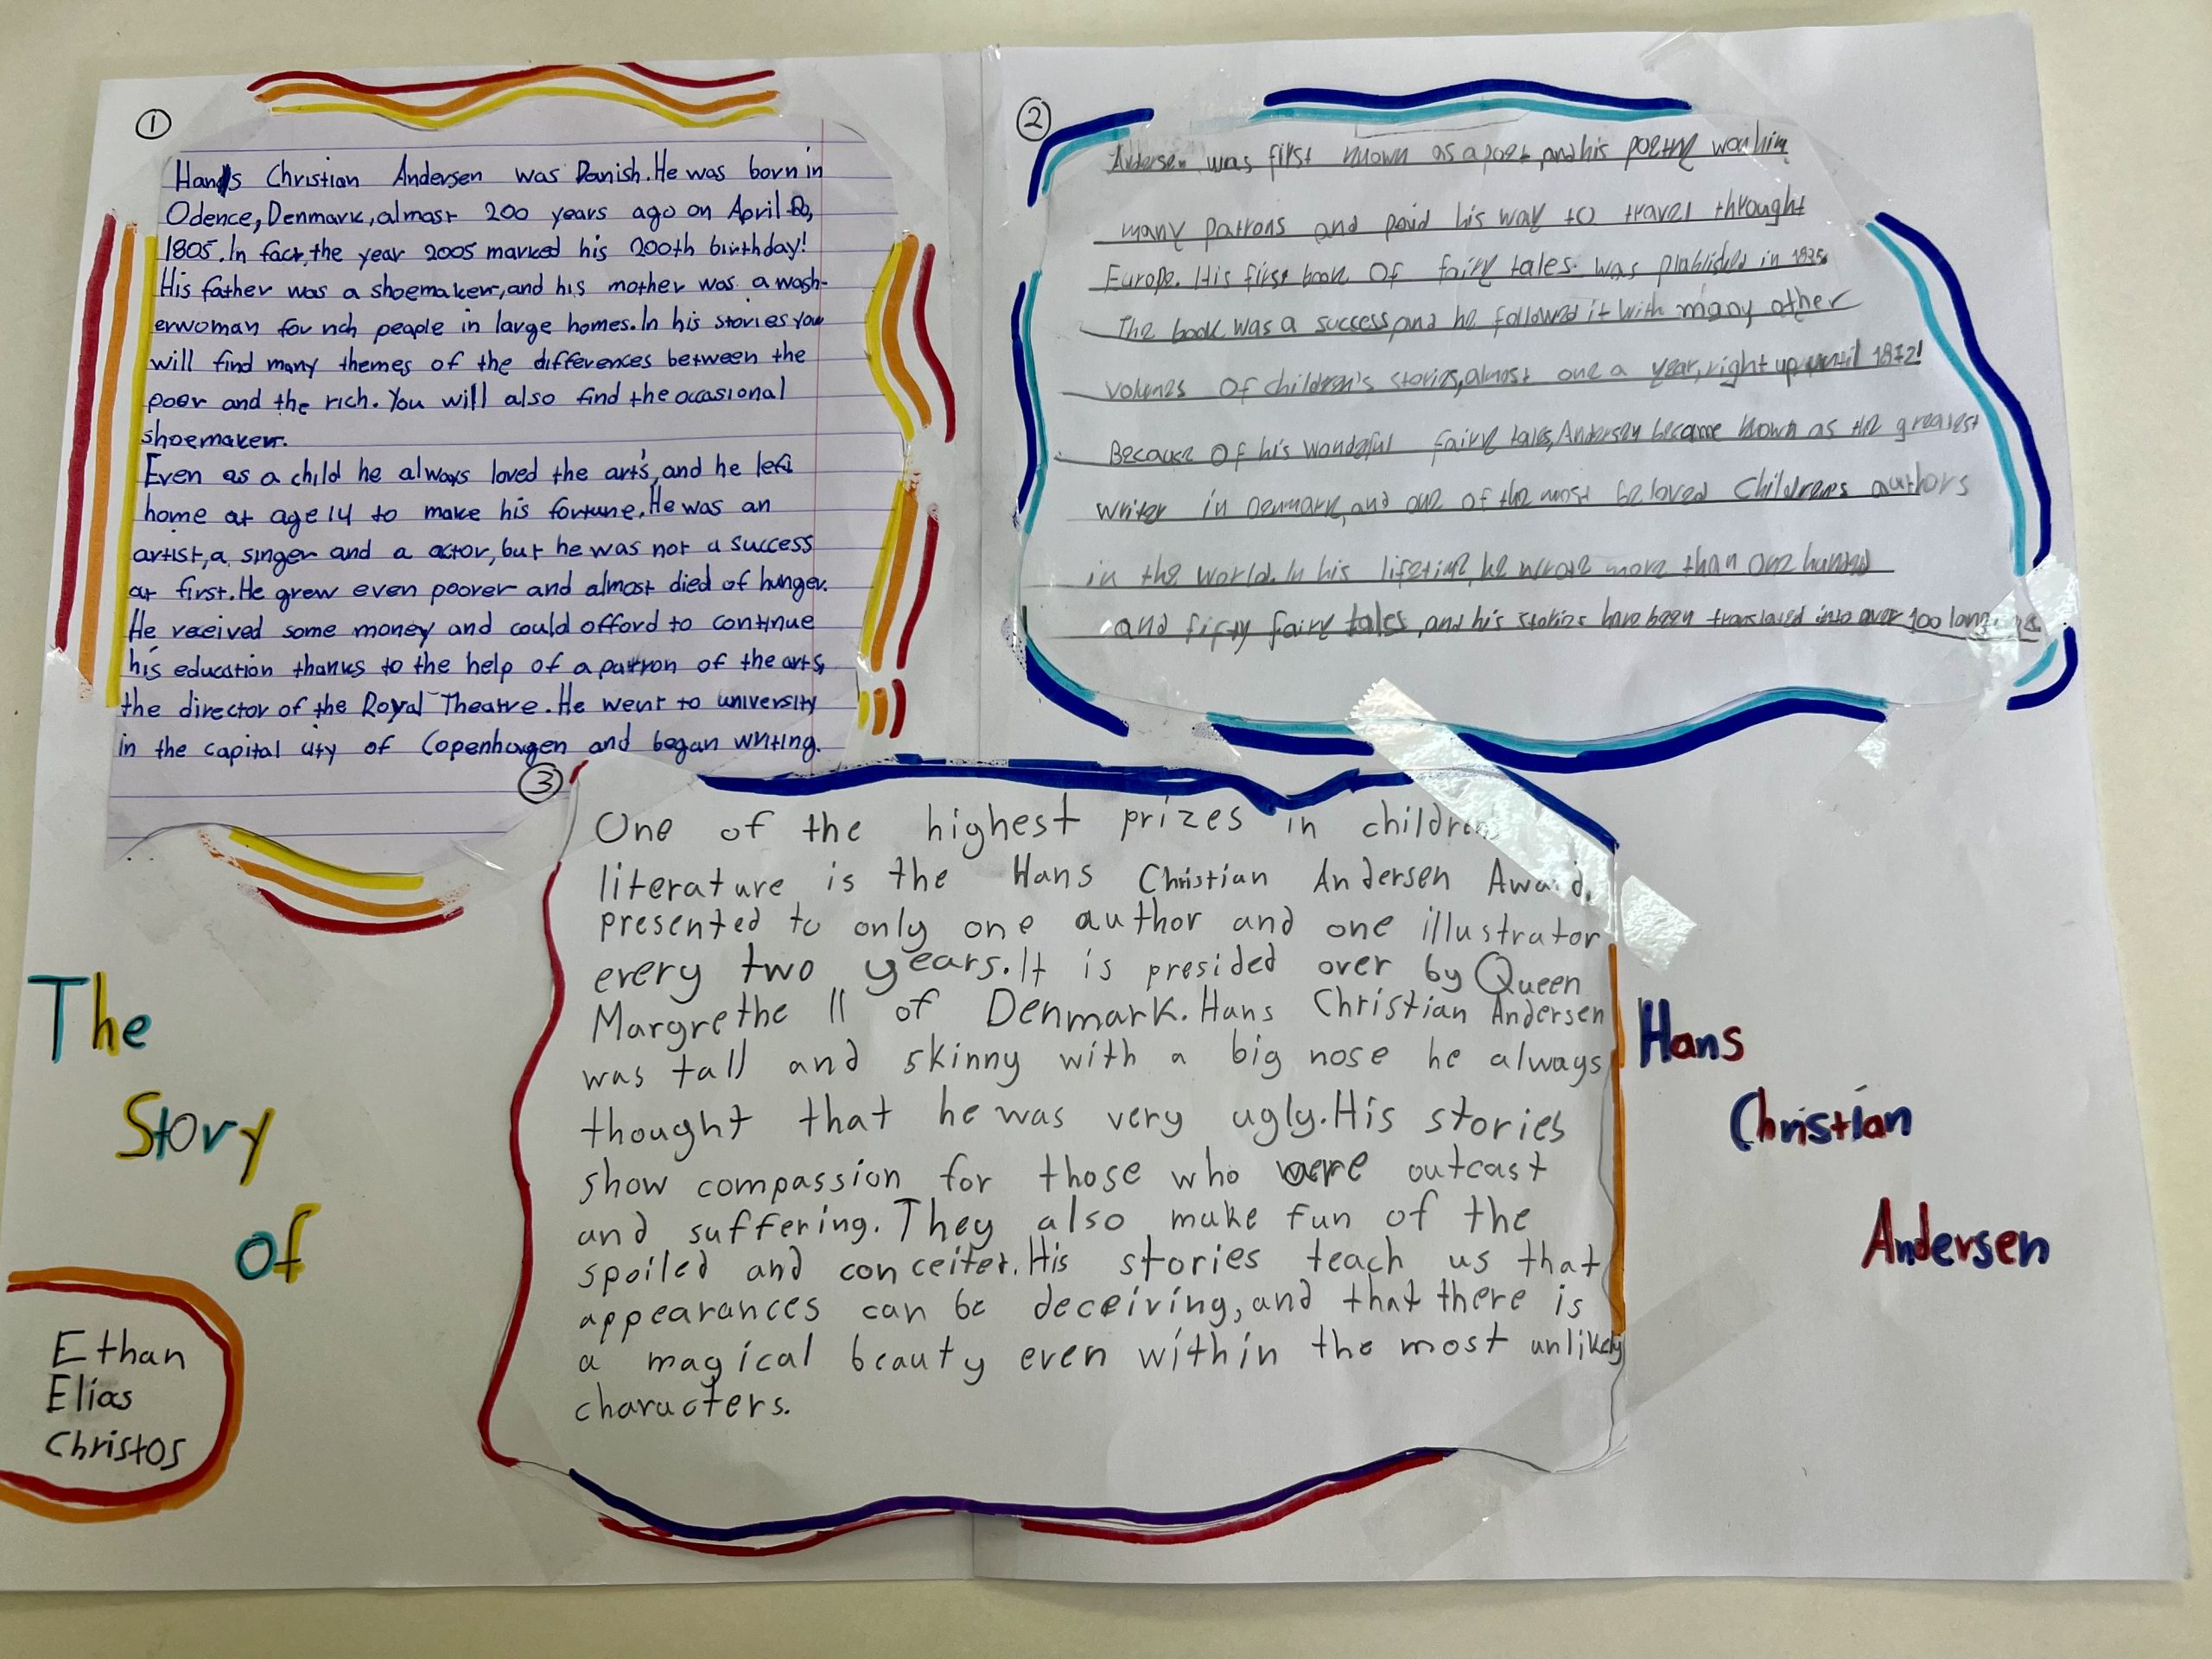 ①
Hans Christian Andersen was Danish. He was born in
Odence, Denmark, almost 200 years ago on April
1805. In fact, the year 2005 marked his 200th birthday!
His father was a shoemaker, and his mother was a wash-
erwoman for rich people in large homes. In his stories you
will find many themes of the differences between the
poor and the rich. You will also find the occasional
shoemaker.
Even as a child he always loved the art's, and he left
home at age 14 to make his fortune. He was an
artist, a singer and a actor, but he was not a success
at first. He grew even poorer and almost died of hunger.
He received some money and could afford to continue
his education thanks to the help of a patron of the arts,
the director of the Royal Theatre. He went to university
in the capital city of Copenhagen and began writing.
②
Andersen was first known as a poet, and his poetry won him
many patrons and paid his way to travel throught
Europe. His first book of fairy tales was plablished in 1835.
The book was a success, and he followed it with many other
volumes of children's stories, almost one a year, right up until 1872!
Because of his wonderful fairy tales, Andersen became known as the greatest
writer in Denmark, and one of the most beloved childrens authors
in the world. In his lifetime, he wrote more than one hundred
and fifty fairy tales, and his stories have been translated into over 100
③
One of the highest prizes in children
literature is the Hans Christian Andersen Award,
presented to only one author and one illustrator
every two years. It is presided over by Queen
Margrethe II of Denmark. Hans Christian Andersen
was tall and skinny with a big nose he always
thought that he was very ugly. His stories
show compassion for those who were outcast
and suffering. They also make fun of the
spoiled and conceiter. His stories teach us that
appearances can be deceiving, and that there is
a magical beauty even within the most unlikely
characters.
The
Story
Of
Hans
Christian
Andersen
Ethan
Elias
Christos